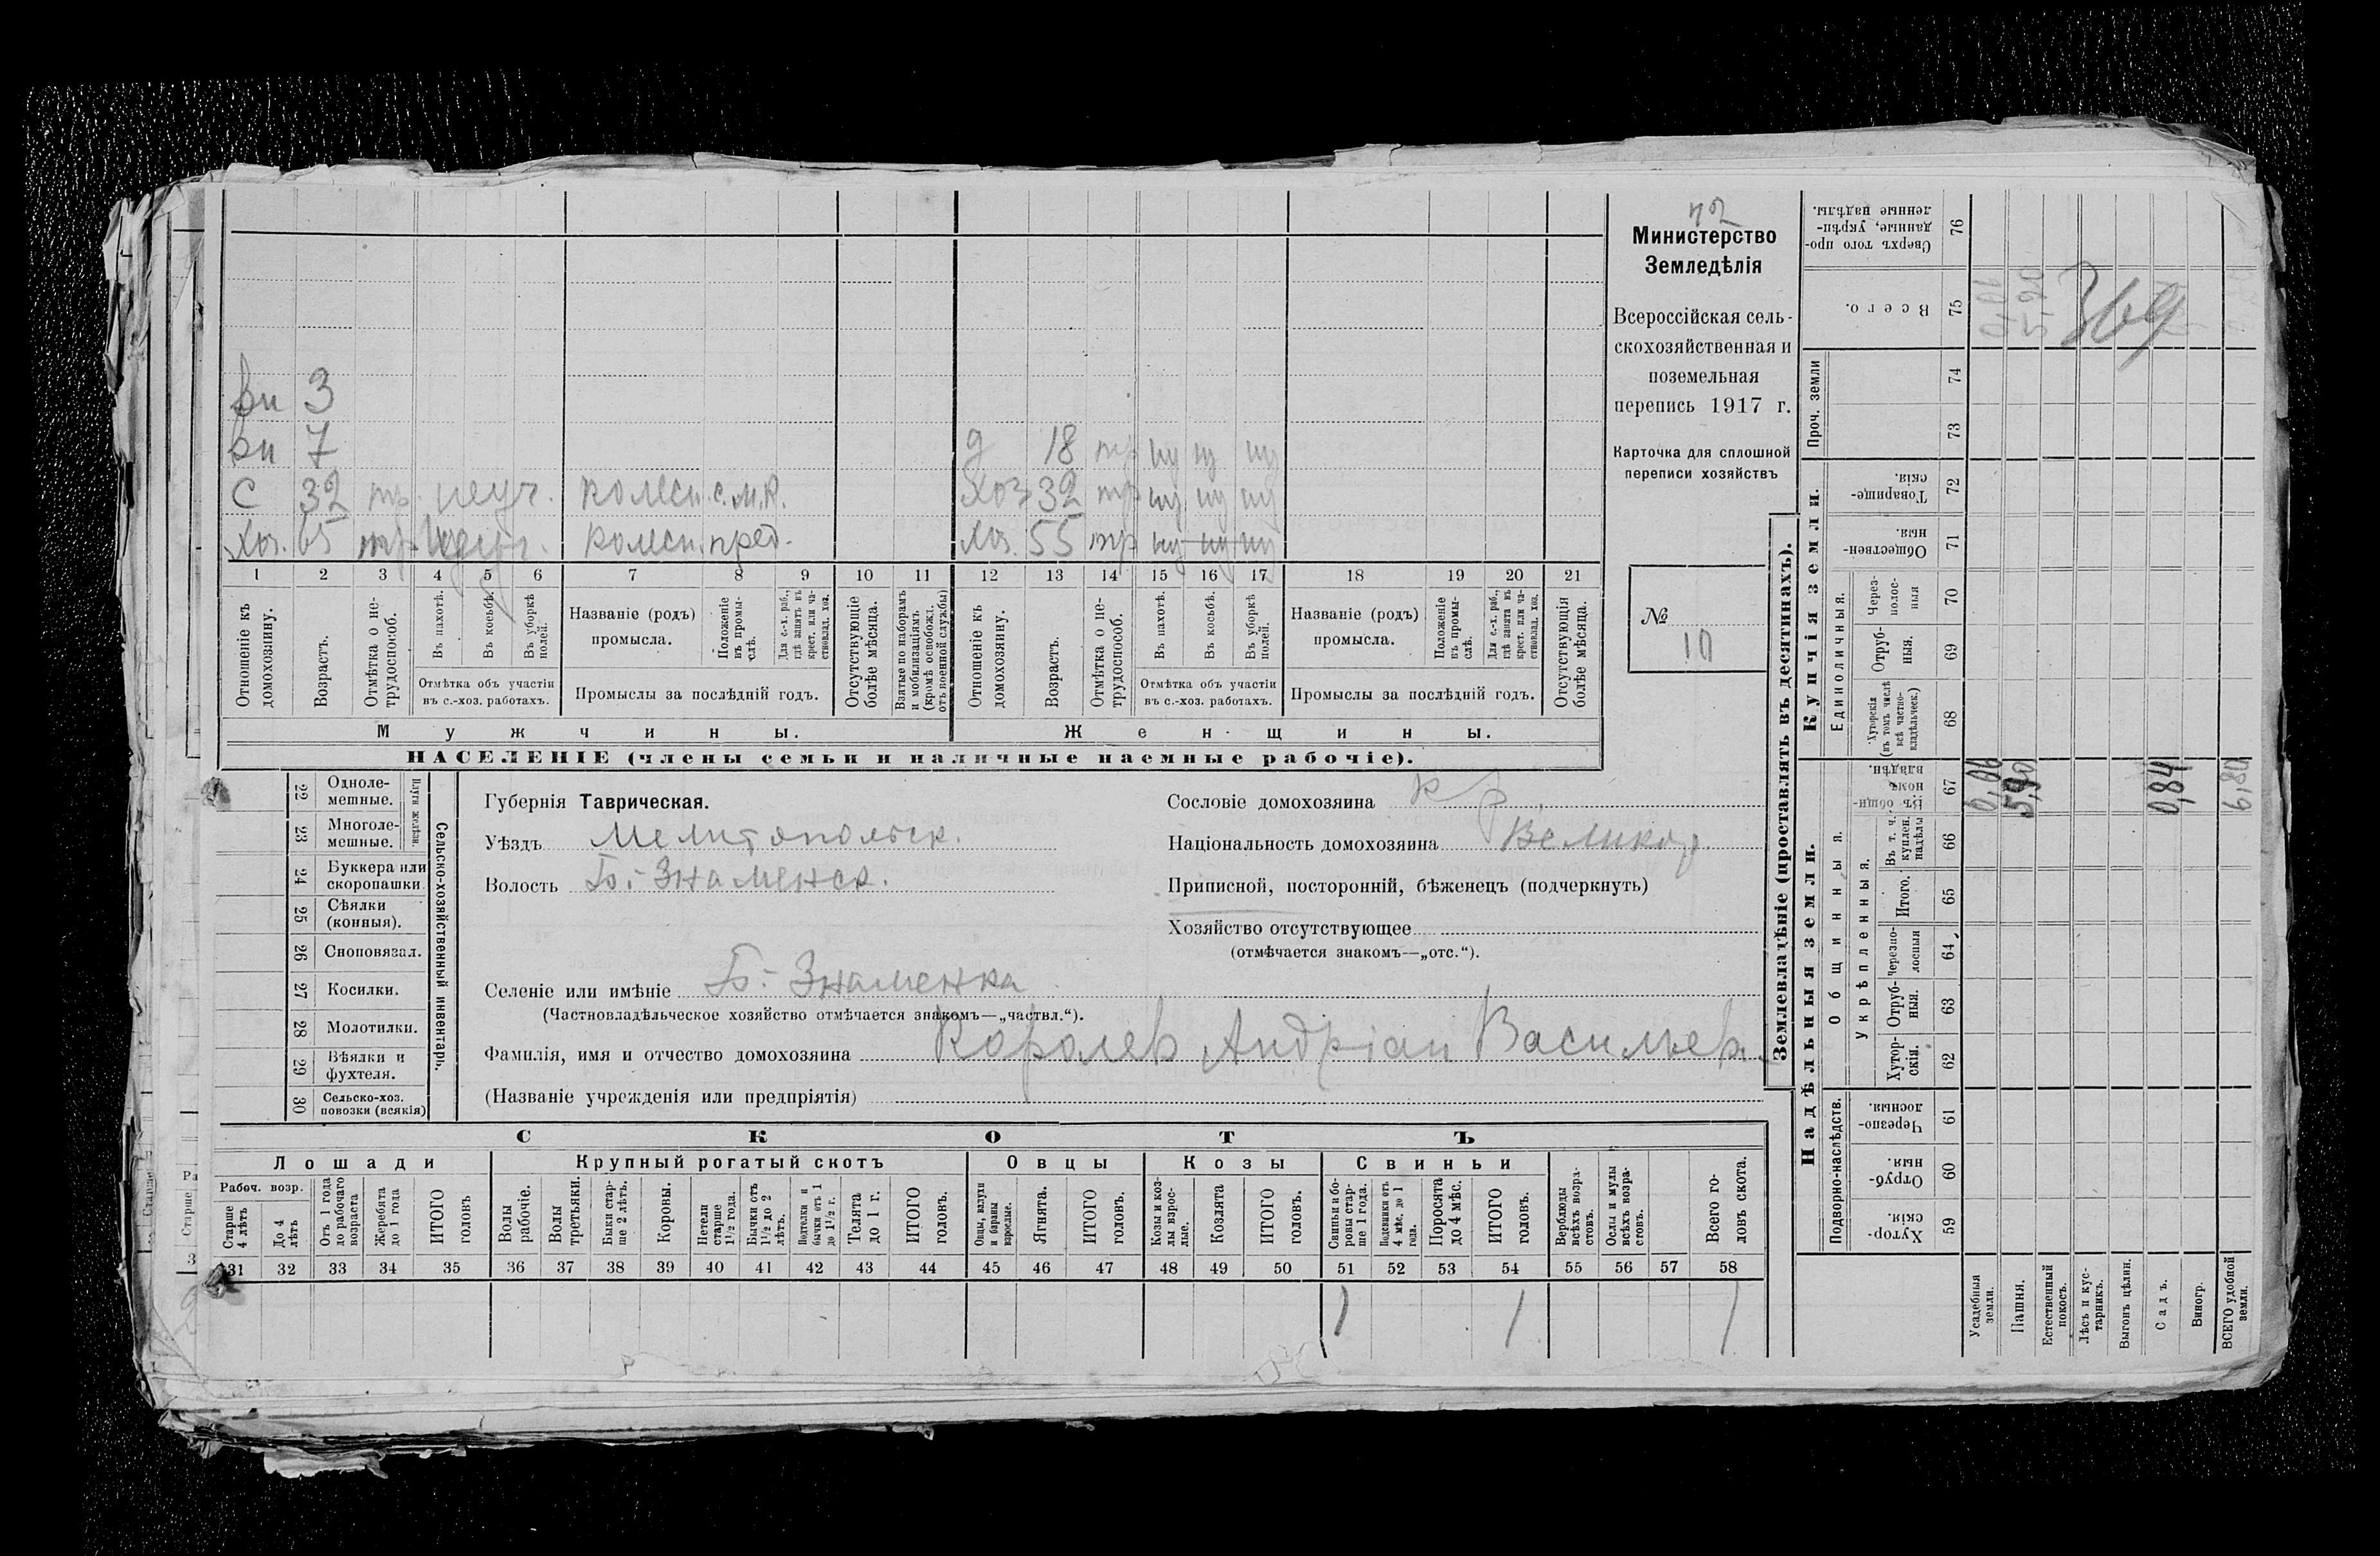 вн 3
вн 7 д 18 тр ну ну ну
с 32 тр неуч. колесн. с.м.к. хоз 32 тр ну ну ну
хоз. 65 тр колесн. пред. хоз. 55 тр ну ну ну
1 2 3 4 5 6 7 8 9 10 11 12 13 14 15 16 17 18 19 20 21
Отношеніе къ домохозяину.
Возрастъ.
Отмѣтка о нетрудоспособ.
Въ пахотѣ.
Въ косьбѣ.
Въ уборкѣ полей.
Отмѣтка объ участіи
въ с.-хоз. работахъ.
Названіе (родъ)
промысла.
Положеніе въ промыслѣ.
Для с.-х. раб., гдѣ занятъ въ крест. или частновлад. хоз.
Промыслы за послѣдній годъ.
Отсутствующіе болѣе мѣсяца.
Взятые по наборамъ и мобилизаціямъ (кромѣ освобожд. отъ военной службы)
Отношеніе къ домохозяину.
Возрастъ.
Отмѣтка о нетрудоспособ.
Въ пахотѣ.
Въ косьбѣ.
Въ уборкѣ полей.
Отмѣтка объ участіи
въ с.-хоз. работахъ.
Названіе (родъ)
промысла.
Положеніе въ промыслѣ.
Для с.-х. раб., гдѣ занятъ въ крест. или частновлад. хоз.
Промыслы за послѣдній годъ.
Отсутствующія болѣе мѣсяца.
Мужчины. Женщины.
НАСЕЛЕНІЕ (члены семьи и наличные наемные рабочіе).
Министерство
Земледѣлія
Всероссійская сель-
скохозяйственная и
поземельная
перепись 1917 г.
Карточка для сплошной
переписи хозяйствъ
№
10
22 Одноле-
мешные.
23 Многоле-
мешные.
Плуги желѣзн.
24 Буккера или
скоропашки.
25 Сѣялки
(конныя).
26 Сноповязал.
27 Косилки.
28 Молотилки.
29 Вѣялки и
фухтеля.
30 Сельско-хоз.
повозки (всякія)
Сельско-хозяйственный инвентарь.
Губернія Таврическая.
Уѣздъ Мелитопольск.
Волость Б.-Знаменск.
Сословіе домохозяина кр.
Національность домохозяина Великор.
Приписной, посторонній, бѣженецъ (подчеркнуть)
Хозяйство отсутствующее
(отмѣчается знакомъ—„отс.“).
Селеніе или имѣніе Б.-Знаменка
(Частновладѣльческое хозяйство отмѣчается знакомъ—„частвл.“).
Фамилія, имя и отчество домохозяина Королев Андріан Васильев.
(Названіе учрежденія или предпріятія)
СКОТЪ
Лошади Крупный рогатый скотъ Овцы Козы Свиньи
Рабоч. возр.
Старше 4 лѣтъ
До 4 лѣтъ
Отъ 1 года до рабочаго возраста
Жеребята до 1 года
ИТОГО головъ
Волы рабочіе.
Волы третьяки.
Быки старше 2 лѣтъ.
Коровы.
Нетели старше 1½ года.
Бычки отъ 1½ до 2 лѣтъ.
Подтелки и бычки отъ 1 до 1½ г.
Телята до 1 г.
ИТОГО головъ.
Овцы, валухи и бараны взрослые.
Ягнята.
ИТОГО головъ.
Козы и козлы взрослые.
Козлята
ИТОГО головъ.
Свиньи и боровы старше 1 года.
Подсвинки отъ 4 мѣс. до 1 года.
Поросята до 4 мѣс.
ИТОГО головъ.
Верблюды всѣхъ возрастовъ.
Ослы и мулы всѣхъ возрастовъ.
Всего головъ скота.
31 32 33 34 35 36 37 38 39 40 41 42 43 44 45 46 47 48 49 50 51 52 53 54 55 56 57 58
1 1 1
Землевладѣніе (проставлять въ десятинахъ).
Надѣльныя земли. Купчія земли. Проч. земли
Подворно-наслѣдств.
Общинныя.
Укрѣпленныя.
Единоличныя.
Хуторскія. 59
Отрубныя. 60
Черезполосныя. 61
Хуторскія. 62
Отрубныя. 63
Черезполосныя 64
Итого. 65
Въ т. ч. куплен. надѣлы 66
Въ общиномъ владѣн. 67
Хуторскія (въ томъ числѣ всѣ частновладѣльческ.) 68
Отрубныя. 69
Черезполосныя 70
Общественныя. 71
Товарищескія. 72
73
74
Всего. 75
Сверхъ того проданные, укрѣпленные надѣлы. 76
Усадебная земля. 0,06 0,06
Пашня. 5,90 5,90
Естественный покосъ.
Лѣсъ и кустарникъ.
Выгонъ цѣлин.
Садъ. 0,84
Виногр.
ВСЕГО удобной земли. 6,80
369